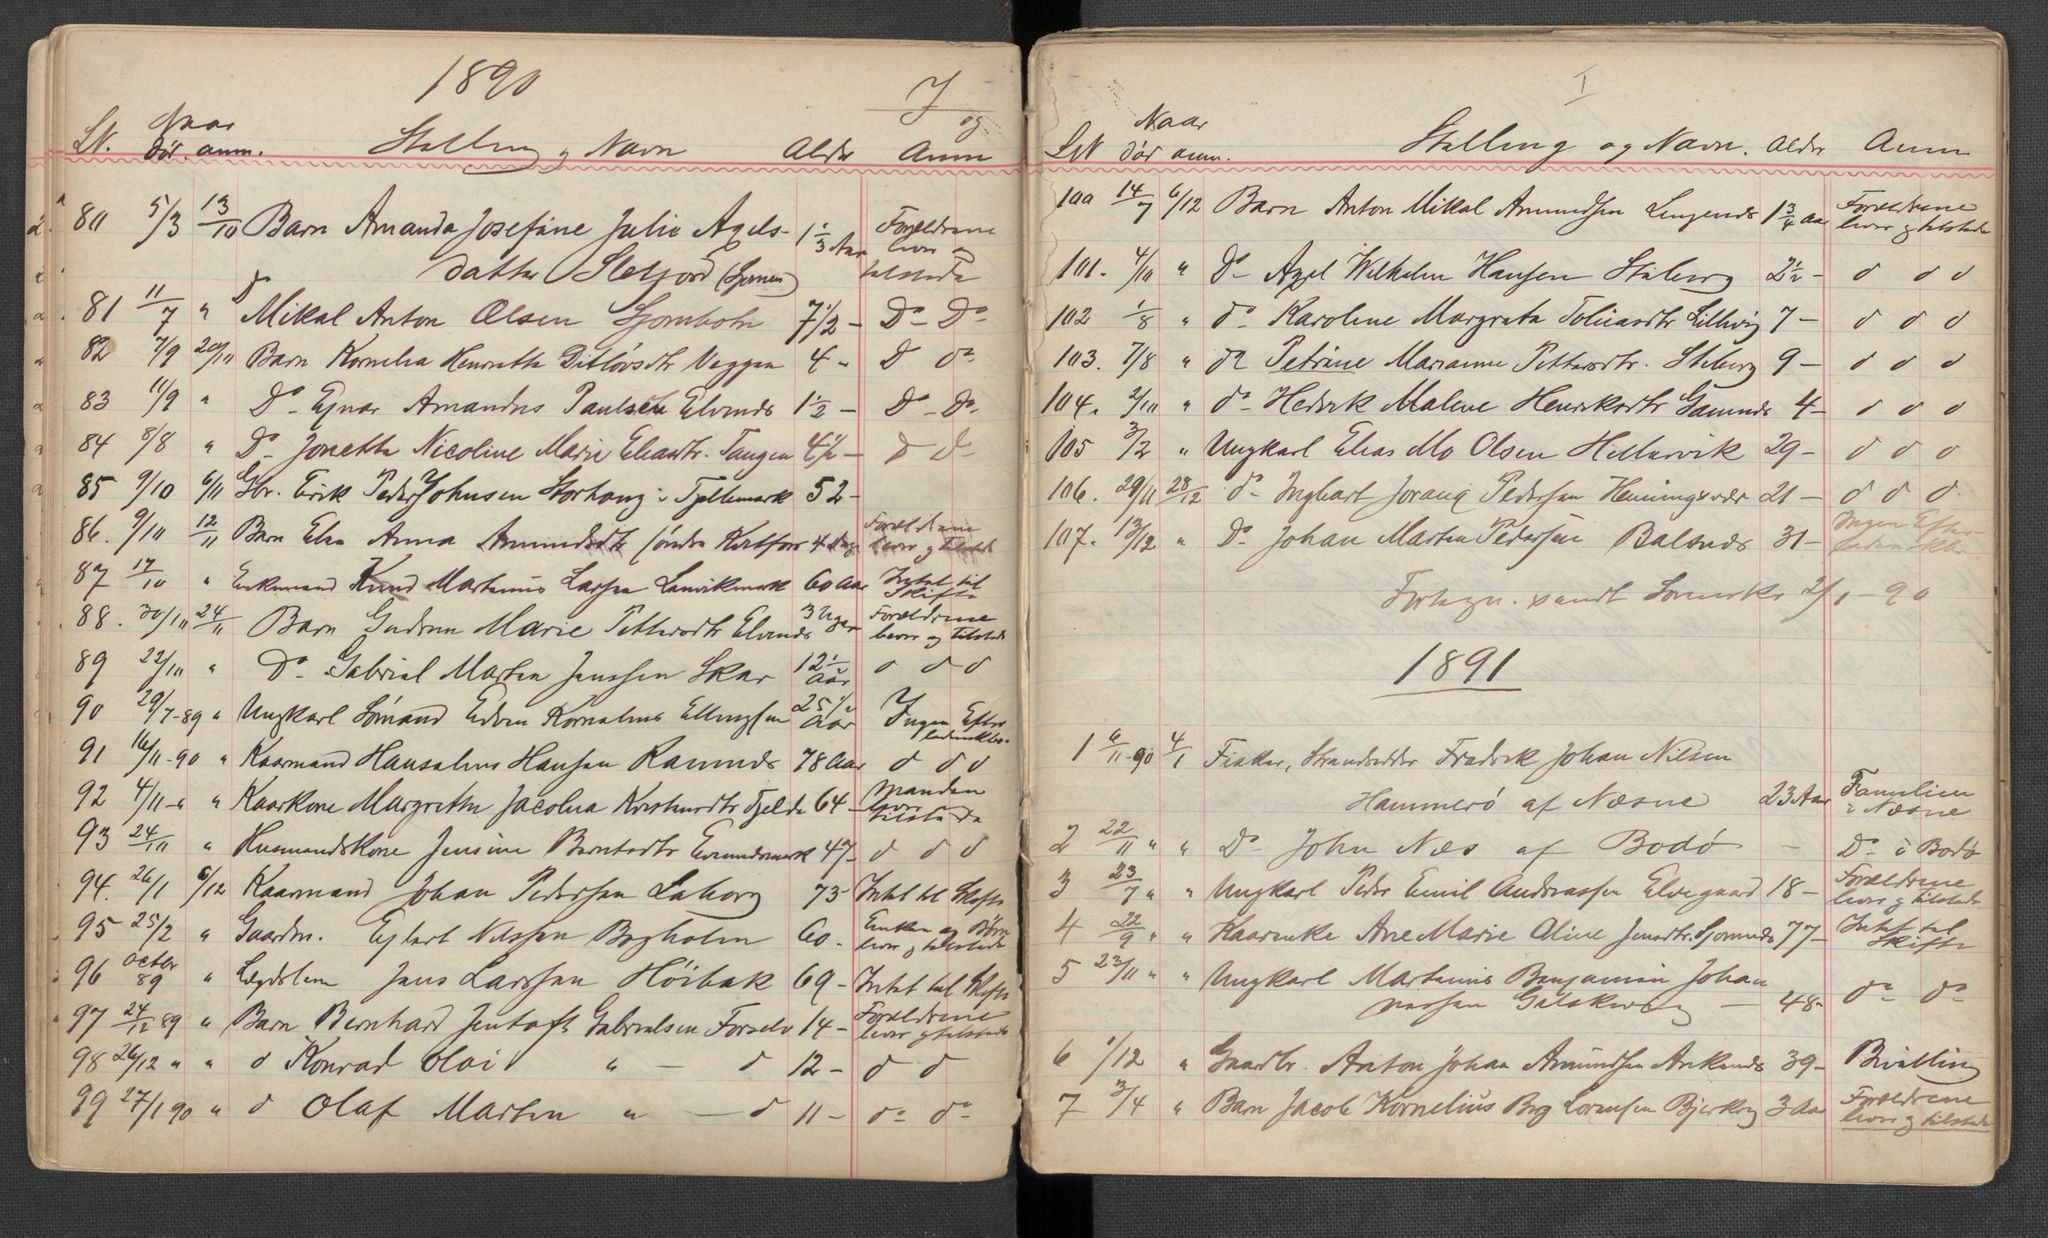 1890
7
LN. Naar
død. anm. Stilling og Navn Alder Anm
80 5/3 13/10 Barn Amanda Josefine Julie Axels- 1 1/3 Aar Forældrene
datter Sletjord lever og
tilstede
81 11/7 " do Mikal Anton Olsen 7 1/2 - Do - Do -
82 7/9 20/11 Barn Kornelia Henrette Ditløvsdtr Veggen 4 - D do
83 11/9 " Do - Ejnar Amandus Paulsen Elvenes 1 1/2 - Do - Do -
84 8/8 " Do Jonetta Nicoline Marie Eliasdtr. Tangen 4 1/2 - D Do
85 9/10 6/11 Gbr. Erik Peder Johnsen Storhaug i Fjellemark 52 -
86. 9/10 12/11 Barn Elen Anna Amundsdtr søndre 4 Dage Forældrene
lever og tilstede
87 17/10 " Enkemand Knud Martinus Larsen 60 Aar Intet til
Skifte
88. 30/10 24/11 Barn Gudrun Marie Pettersdtr Elvenes 3 Uger Forældrene
lever og tilstede
89 22/10 " Do - Gabriel Martin Jenssen Skar 12 1/2 Aar d d d
90 29/7-89 " Ungkarl Sømand Edvin Kornelius Ellingsen 25 1/2 Aar Ingen Efter
ladenskber.
91 16/11-90 " Kaarmand Hansalius Hansen Ramnes 78 Aar d d d
92 4/11-" " Kaarkone Margrethe Jacobina 64 - Manden
lever
tilstede
93 24/11 " Husmandskone Jensine Berntsdtr 47 - d d d
94. 26/1 6/12 Kaarmand Johan Pedersen Laberg 73 - Intet til Skifte
95 25/2 " Gaardm. Ejlert Nilssen Bogholm 60 - Enken og Børn
lever og tilstede
96 Octbr 89 " Lægdslem Jens Larssen Høibak 69 - Intet til Skifte
97 24/12 89 " Barn Bernhard Jentoft Gabrielsen Forselv 14 - Forældrene
lever og tilstede
98 26/12 " " d Konrad Olai " - d 12 - d d
99 27/1 90 " d Olaf Martin " - d 11 - do do
I
LN Naar
død anm. Stilling og Navn. Alder Anm
100 14/7 6/12 Barn Anton Mikal Amundsen Lengenes 1 3/4 Aar Forældrene
lever og tilstede
101. 4/10 " Do - Axel Wilhelm Hansen Stiberg 2 1/2 - d d d
102 1/8 " do Karoline Margrete Tobiasdtr Lillevig 7 - d d d
103. 7/8 " do Petrine Marianne Pettersdtr. Stiberg 9 - d d d
104. 2/10 " do - Hedvik Malene Henriksdtr Gamnes 4 - d d d
105 3/2 " Ungkarl Elias Mo Olsen Hellarvik 29 - d d d
106. 29/11 28/12 do - Ingbart Pedersen Henningsvær 21 - d d d
107. 13/12 " Do Johan Martin Pedersen Balsnes 31 - Ingen Efter
ladenskber
Fortegn. sendt 2/1 - 90
1891
1 6/11-90 4/1 Fisker, Strandsidder Fredrik Johan Nilsen
Hammerø af Næsne 23 Aar Familien
i Næsne
2 22/11 " " Do - John Næs af Bodø - Do i Bodø
3 23/7 " " Ungkarl Peder Emil Andreassen Elvegaard 18 - Forældrene
lever og tilstede
4 22/9 " " Kaarenke Ane Marie Oline Jensdtr. 77 - Intet til
Skifte
5 23/11 " " Ungkarl Martinus Benjamin Johan
nessen - 48 - do do
6 1/12 " Gaardbr. Anton Johan Amundsen Ankenes 39 - Bevilling
7 3/4 " Barn Jacob Kornelius Berg Lorensen Bjerkvig 3 Aar Forældrene
lever og tilstede